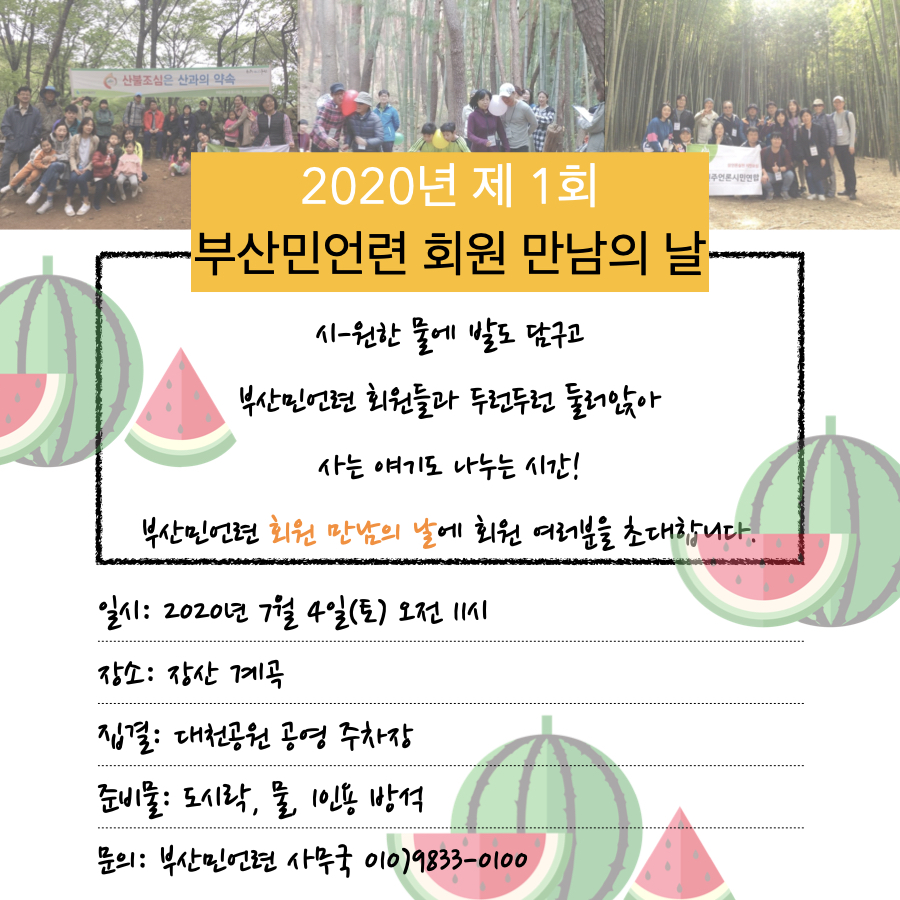 산불조심은 산과의 약속
주언론시민연합
2020년 제 1회
부산민언련 회원 만남의 날
시-원한 물에 발도 담구고
부산민언련 회원들과 두런두런 둘러앉아
사는 얘기도 나누는 시간!
부산민언련 회원 만남의 날에 회원 여러분을 초대합니다.
일시: 2020년 7월 4일(토) 오전 11시
장소: 장산 계곡
집결: 대천공원 공영 주차장
준비물: 도시락, 물, 1인용 방석
문의: 부산민언련 사무국 010)9833-0100